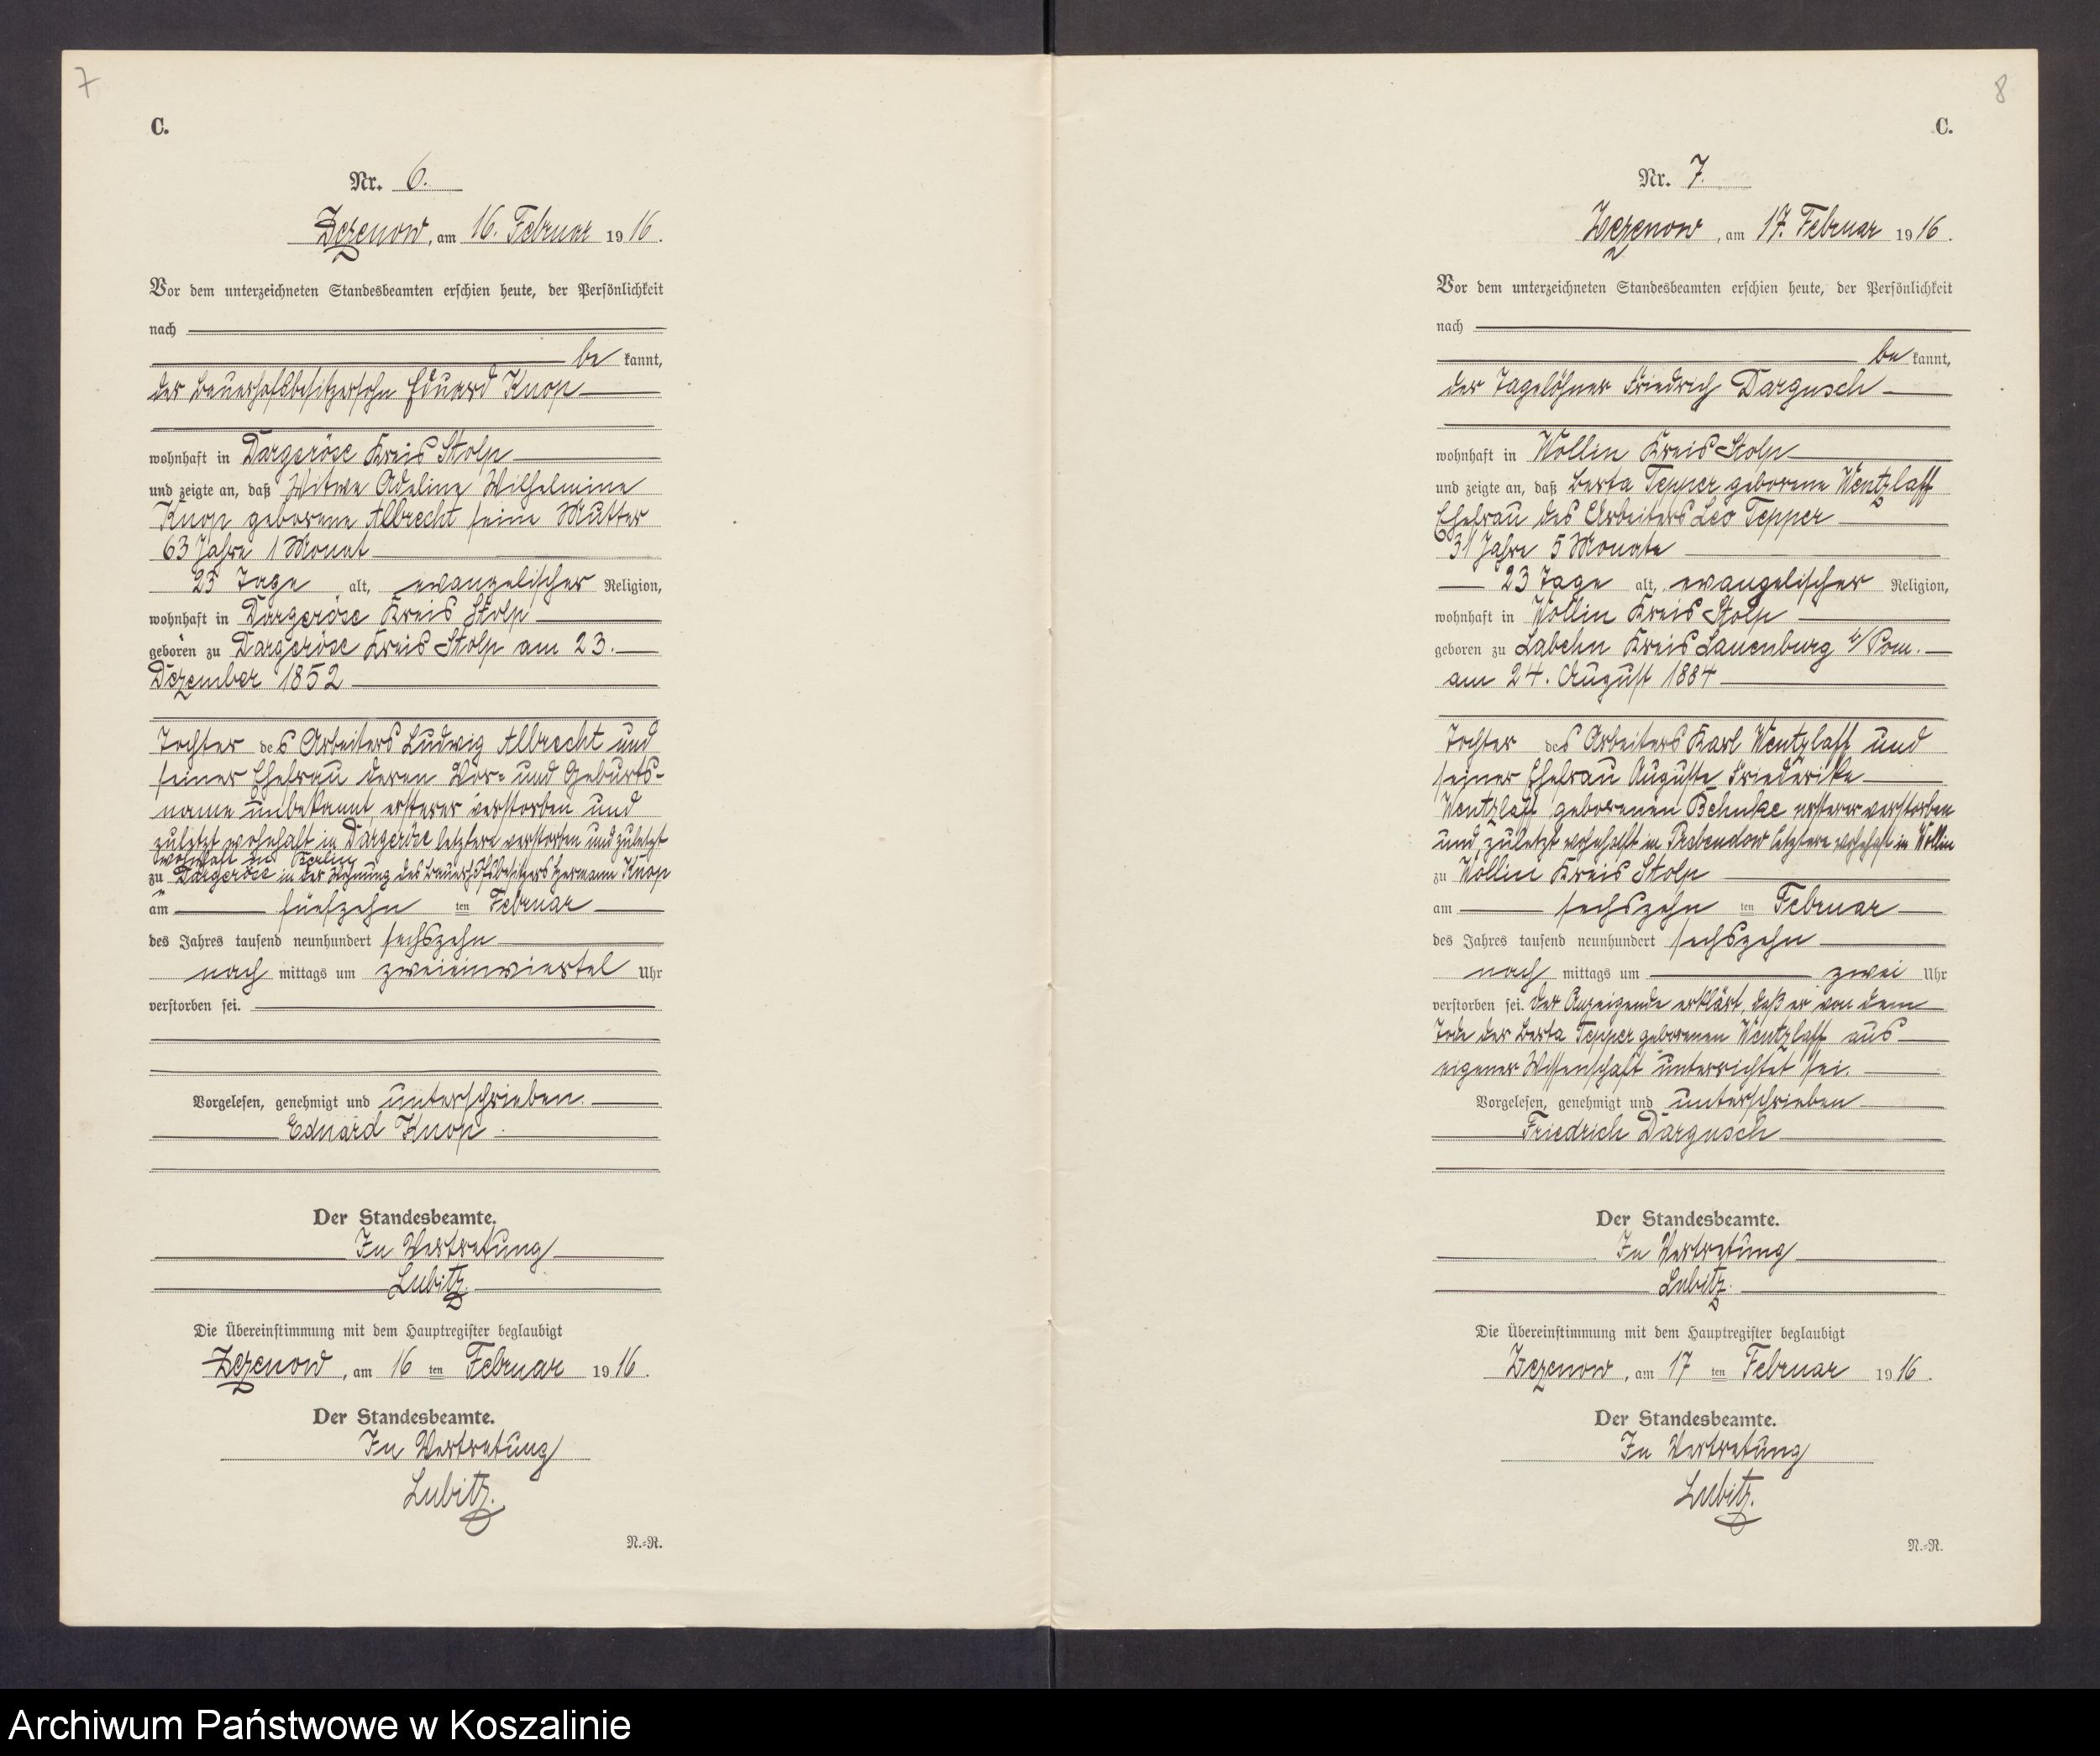 7
C.
Nr. 6.
Zezenow, am 16. Februar 1916.
Vor dem unterzeichneten Standesbeamten erschien heute, der Persönlichkeit
nach
be kannt,
der Bauerhofsbesitzersohn Eduard Knop
wohnhaft in Dargeröse Kreis Stolp
und zeigte an, daß Witwe Adeline Wilhelmine
Knop geborene Albrecht seine Mutter
63 Jahre 1 Monat
23 Tage alt, evangelischer Religion,
wohnhaft in Dargeröse Kreis Stolp
geboren zu Dargeröse Kreis Stolp am 23.
Dezember 1852
Tochter des Arbeiters Ludwig Albrecht und
seiner Ehefrau deren Vor- und Geburts-
name unbekannt, ersterer verstorben und
zuletzt wohnhaft in Dargeröse letztere verstorben und zuletzt
wohnhaft in Berlin
zu Dargeröse in der Wohnung des Bauerhofsbesitzers Hermann Knop
am fünfzehn ten Februar
des Jahres tausend neunhundert sechszehn
nach mittags um zweieinviertel Uhr
verstorben sei.
Vorgelesen, genehmigt und unterschrieben.
Eduard Knop
Der Standesbeamte.
In Vertretung
Lubitz.
Die Übereinstimmung mit dem Hauptregister beglaubigt
Zezenow, am 16 ten Februar 1916.
Der Standesbeamte.
In Vertretung
Lubitz.
N.-R.
8
C.
Nr. 7.
Zezenow, am 17. Februar 1916.
Vor dem unterzeichneten Standesbeamten erschien heute, der Persönlichkeit
nach
be kannt,
der Tagelöhner Friedrich Dargusch
wohnhaft in Wollin Kreis Stolp
und zeigte an, daß Berta Tepper geborene Wentzlaff
Ehefrau des Arbeiters Leo Tepper
31 Jahre 5 Monate
23 Tage alt, evangelischer Religion,
wohnhaft in Wollin Kreis Stolp
geboren zu Labehn Kreis Lauenburg i/Pom.
am 24. August 1884
Tochter des Arbeiters Karl Wentzlaff und
seiner Ehefrau Auguste Friederike
Wentzlaff geborenen Behnke ersterer verstorben
und zuletzt wohnhaft in Prebendow letztere wohnhaft in Wollin
zu Wollin Kreis Stolp
am sechszehn ten Februar
des Jahres tausend neunhundert sechszehn
nach mittags um zwei Uhr
verstorben sei. Der Anzeigende erklärt, daß er von dem
Tode der Berta Tepper geborenen Wentzlaff aus
eigener Wissenschaft unterrichtet sei.
Vorgelesen, genehmigt und unterschrieben
Friedrich Dargusch
Der Standesbeamte.
In Vertretung
Lubitz.
Die Übereinstimmung mit dem Hauptregister beglaubigt
Zezenow, am 17 ten Februar 1916.
Der Standesbeamte.
In Vertretung
Lubitz.
N.-R.
Archiwum Państwowe w Koszalinie